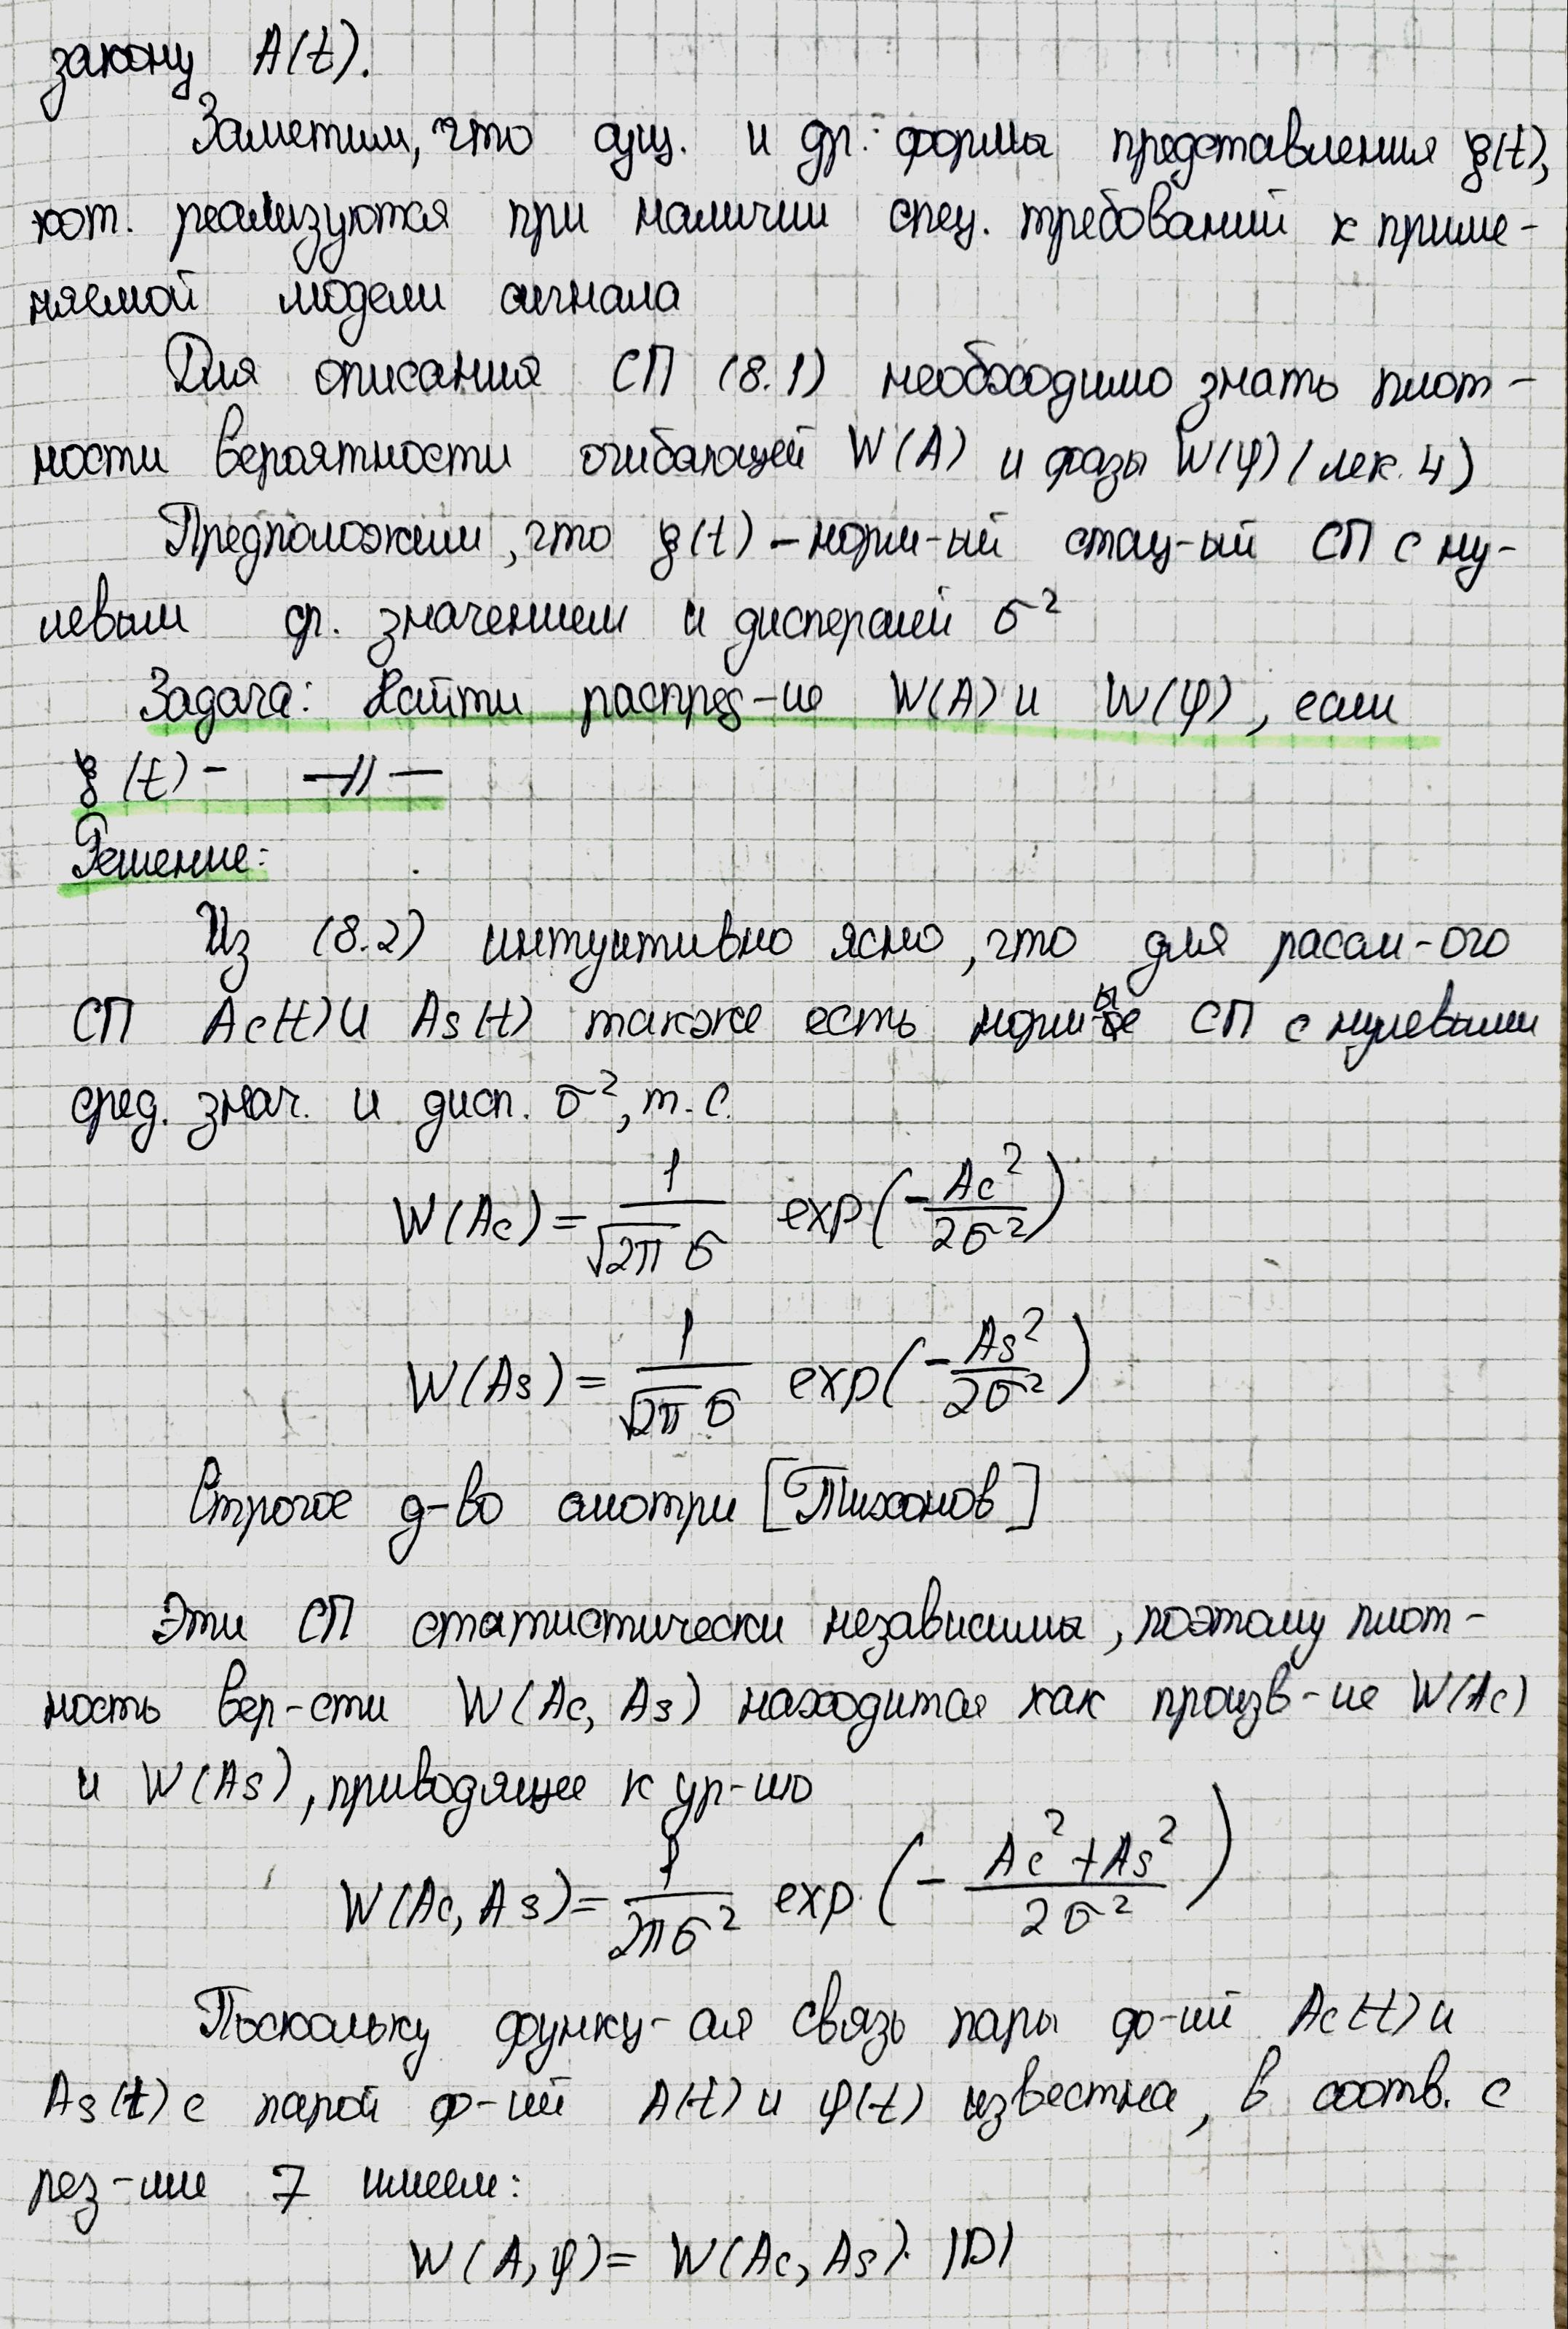 закону A(t).
Заметим, что сущ. и др. формы представления ξ(t),
кот. реализуются при наличии спец. требований к приме-
няемой модели сигнала
Для описания СП (8.1) необходимо знать плот-
ности вероятности огибающей W(A) и фазы W(φ) (лек. 4)
Предположим, что ξ(t) – норм-ый стац-ый СП с ну-
левым ср. значением и дисперсией σ²
Задача: Найти распред-ие W(A) и W(φ), если
ξ(t) – —//—
Решение:
Из (8.2) интуитивно ясно, что для рассм-ого
СП Ac(t) и As(t) также есть норм-ые СП с нулевыми
сред. знач. и дисп. σ², т.е.
W(Ac) = 1/(√2π σ) exp(-Ac²/2σ²)
W(As) = 1/(√2π σ) exp(-As²/2σ²)
Строгое д-во смотри [Тихонов]
Эти СП статистически независимы, поэтому плот-
ность вер-сти W(Ac, As) находится как произв-ие W(Ac)
и W(As), приводящее к ур-ию
W(Ac, As) = 1/(2πσ²) exp(-(Ac²+As²)/2σ²)
Поскольку функц-ая связь пары ф-ий Ac(t) и
As(t) с парой ф-ий A(t) и φ(t) известна, в соотв. с
рез-ми 7 имеем:
W(A, φ) = W(Ac, As) · |D|